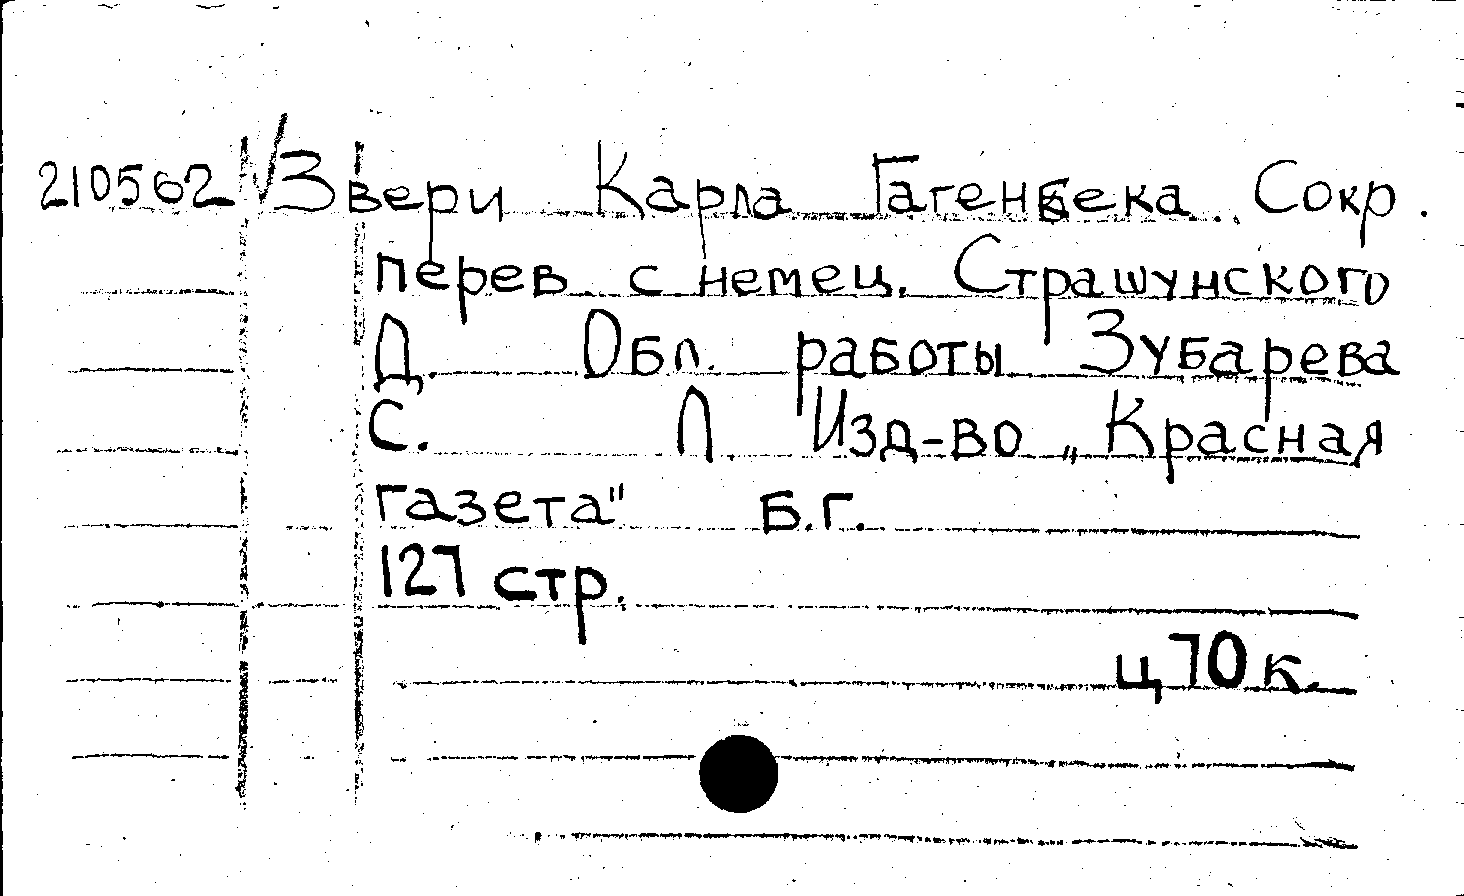 210562 √ Звери Карла Гагенбека. Сокр.
перев с немец. Страшунского
Д. Обл. работы Зубарева
С. Л. Изд-во „Красная
газета" Б.Г.
127 стр.
ц 70 к.